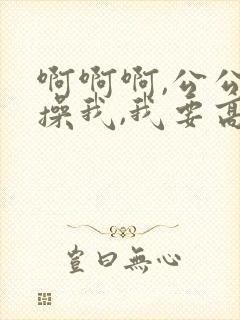 啊啊啊,公公
操我,我要高
豈曰無心